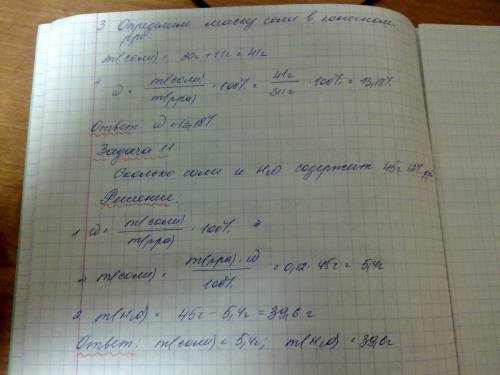 3 Определим массу соли в конечном
р-ре:
m(соли) = 30г + 11г = 41г
ω = m(соли) / m(р-ра) · 100% = 41г / 311г · 100% = 13,18%
Ответ: ω = 13,18%
Задача 11
Сколько соли и H₂O содержит 45г 12% р-р
Решение:
1 ω = m(соли) / m(р-ра) · 100% ⇒
⇒ m(соли) = m(р-ра) · ω / 100% = 0,12 · 45г = 5,4г
2. m(H₂O) = 45г − 5,4г = 39,6 г
Ответ: m(соли) = 5,4г; m(H₂O) = 39,6г